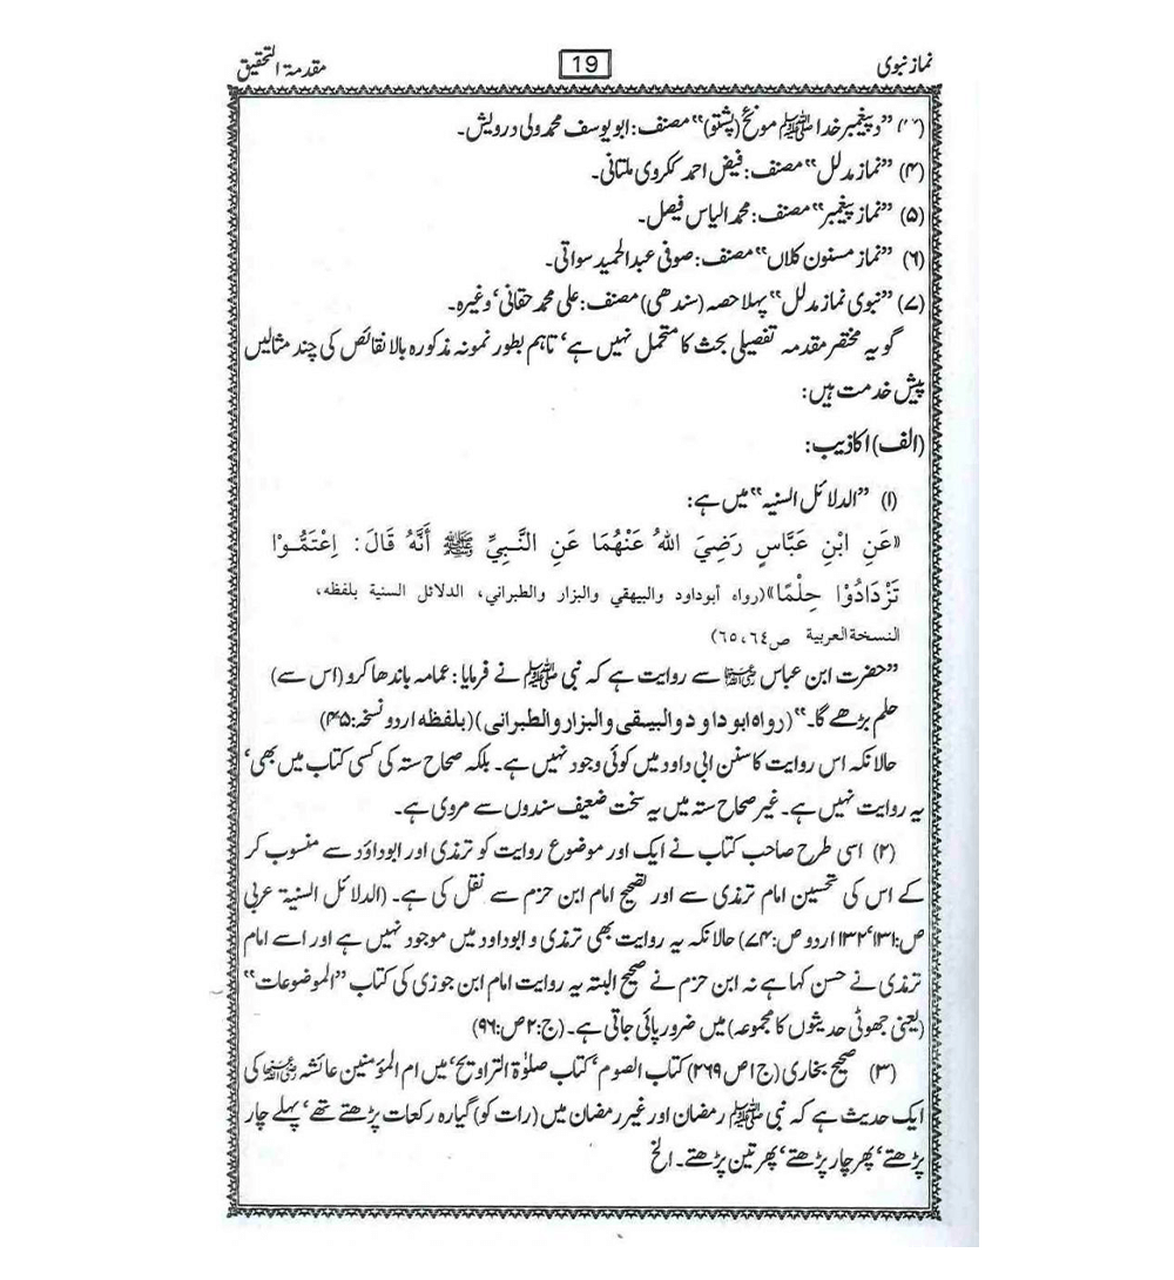 نماز نبوی
19
مقدمۃ التحقیق
(۳) ”دپیغمبر خدا ﷺ مونځ (پشتو)“ مصنف: ابویوسف محمد ولی درویش۔
(۴) ”نماز مدلل“ مصنف: فیض احمد ککروی ملتانی۔
(۵) ”نماز پیغمبر“ مصنف: محمد الیاس فیصل۔
(۶) ”نماز مسنون کلاں“ مصنف: صوفی عبدالحمید سواتی۔
(۷) ”نبوی نماز مدلل“ پہلا حصہ (سندھی) مصنف: علی محمد حقانی‘ وغیرہ۔
گو یہ مختصر مقدمہ تفصیلی بحث کا متحمل نہیں ہے‘ تاہم بطور نمونہ مذکورہ بالا نقائص کی چند مثالیں
پیش خدمت ہیں:
(الف) اکاذیب:
(۱) ”الدلائل السنیہ“ میں ہے:
«عَنِ ابْنِ عَبَّاسٍ رَضِيَ اللهُ عَنْهُمَا عَنِ النَّبِيِّ ﷺ أَنَّهُ قَالَ: اِعْتَمُّوْا
تَزْدَادُوْا حِلْمًا»(رواه أبوداود والبيهقي والبزار والطبراني، الدلائل السنية بلفظه،
النسخة العربية ص٦٥،٦٤)
”حضرت ابن عباس رضی اللہ عنہما سے روایت ہے کہ نبی ﷺ نے فرمایا: عمامہ باندھا کرو (اس سے)
حلم بڑھے گا۔“ (رواہ ابوداود والبیہقی والبزار والطبرانی) (بلفظہ اردو نسخہ:۴۵)
حالانکہ اس روایت کا سنن ابی داود میں کوئی وجود نہیں ہے۔ بلکہ صحاح ستہ کی کسی کتاب میں بھی‘
یہ روایت نہیں ہے۔ غیر صحاح ستہ میں یہ سخت ضعیف سندوں سے مروی ہے۔
(۲) اسی طرح صاحب کتاب نے ایک اور موضوع روایت کو ترمذی اور ابوداؤد سے منسوب کر
کے اس کی تحسین امام ترمذی سے اور تصحیح امام ابن حزم سے نقل کی ہے۔ (الدلائل السنیۃ عربی
ص:۱۳۱‘۱۳۲ اردو ص:۷۴) حالانکہ یہ روایت بھی ترمذی و ابوداود میں موجود نہیں ہے اور اسے امام
ترمذی نے حسن کہا ہے نہ ابن حزم نے صحیح البتہ یہ روایت امام ابن جوزی کی کتاب ”الموضوعات“
(یعنی جھوٹی حدیثوں کا مجموعہ) میں ضرور پائی جاتی ہے۔ (ج:۲ص:۹۶)
(۳) صحیح بخاری (ج۱ص۲۶۹) کتاب الصوم‘ کتاب صلوٰۃ التراویح‘ میں ام المؤمنین عائشہ رضی اللہ عنہا کی
ایک حدیث ہے کہ نبی ﷺ رمضان اور غیر رمضان میں (رات کو) گیارہ رکعات پڑھتے تھے‘ پہلے چار
پڑھتے‘ پھر چار پڑھتے‘ پھر تین پڑھتے۔ الخ